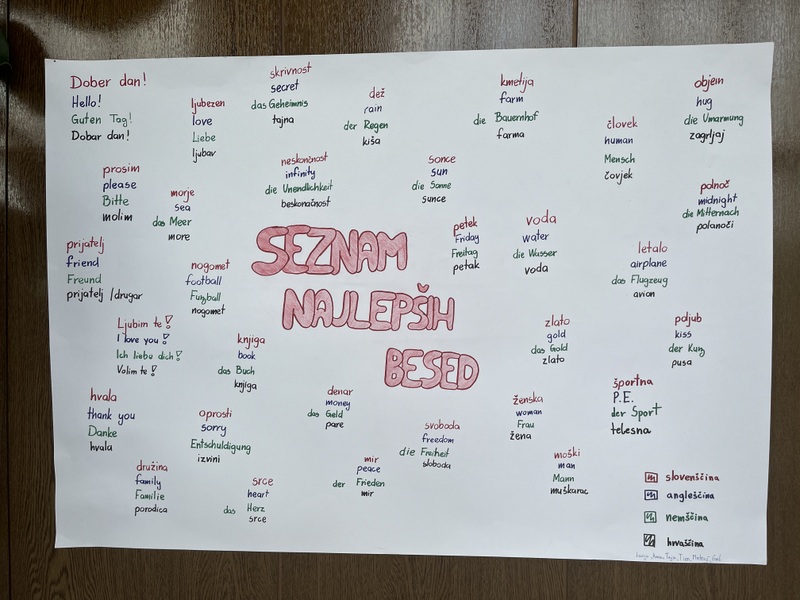 Dober dan!
Hello!
Guten Tag!
Dobar dan!
skrivnost
secret
das Geheimnis
tajna
ljubezen
love
Liebe
ljubav
dež
rain
der Regen
kiša
kmetija
farm
die Bauernhof
farma
objem
hug
die Umarmung
zagrljaj
človek
human
Mensch
čovjek
prosim
please
Bitte
molim
morje
sea
das Meer
more
neskončnost
infinity
die Unendlichkeit
beskonačnost
sonce
sun
die Sonne
sunce
polnoč
midnight
die Mitternach
polanoći
prijatelj
friend
Freund
prijatelj /drugar
nogomet
football
Fußball
nogomet
SEZNAM
NAJLEPŠIH
BESED
petek
Friday
Freitag
petak
voda
water
die Wasser
voda
letalo
airplane
das Flugzeug
avion
Ljubim te!
I love you!
Ich liebe dich!
Volim te!
knjiga
book
das Buch
knjiga
zlato
gold
das Gold
zlato
poljub
kiss
der Kuss
pusa
hvala
thank you
Danke
hvala
oprosti
sorry
Entschuldigung
izvini
denar
money
das Geld
pare
svoboda
freedom
die Freiheit
sloboda
ženska
woman
Frau
žena
športna
P.E.
der Sport
telesna
družina
family
Familie
porodica
srce
heart
das Herz
srce
mir
peace
der Frieden
mir
moški
man
Mann
muškarac
slovenščina
angleščina
nemščina
hrvaščina